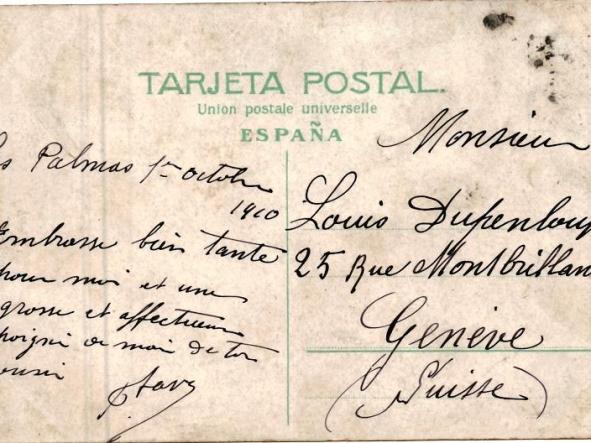 TARJETA POSTAL.
Union postale universelle
ESPAÑA
Palmas 1er octobre
1910
Embrasse bien tante
pour moi et une
grosse et affectueuse
poignée de main de ton
cousin
Monsieur
Louis Dupenloup
25 Rue Montbrillant
Genève
(Suisse)